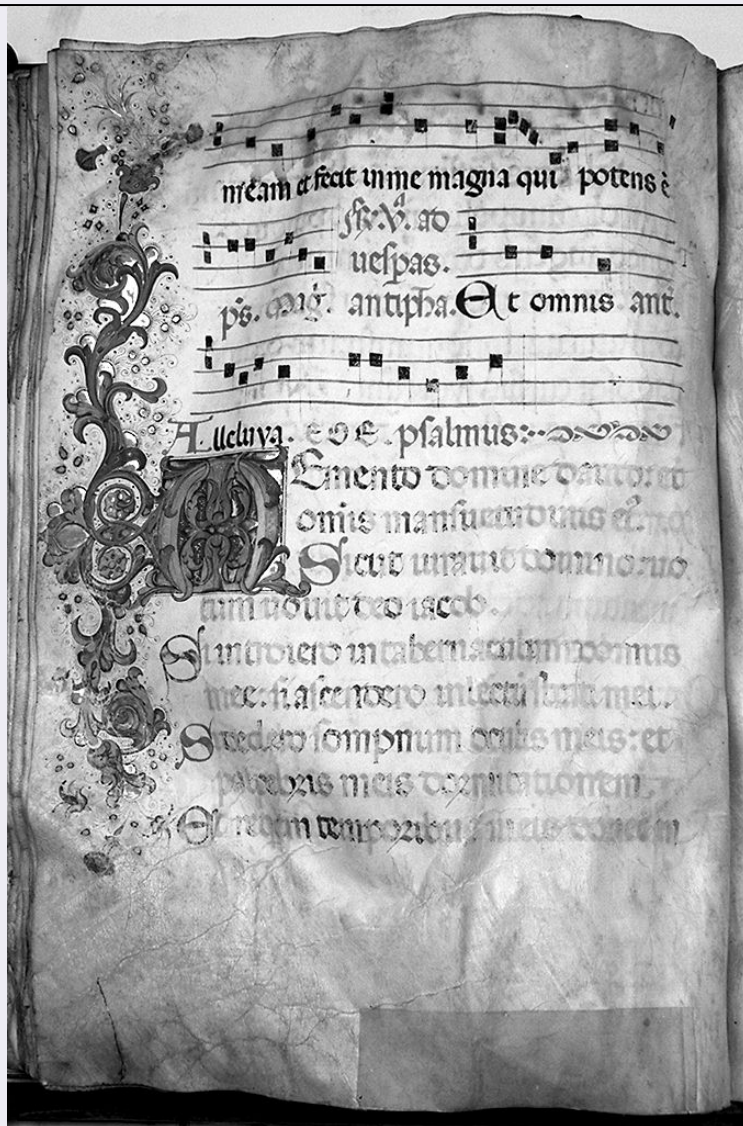 meam et fecit in me magna qui potens ē
fer. v. ad
uespas.
ps. Mag. antipha. Et omnis ant.
Alleluya. e o e. psalmus:
Emento domine dauid: et
omnis mansuetudinis eí.
Sicut iurauit domino: uo
tum uouit deo iacob.
Si introiero in tabernaculum domus
mee: si ascendero in lectum strati mei.
Si dedero sompnum oculis meis: et
palpebris meis dormitationem.
Et requiem temporibus meis donec in